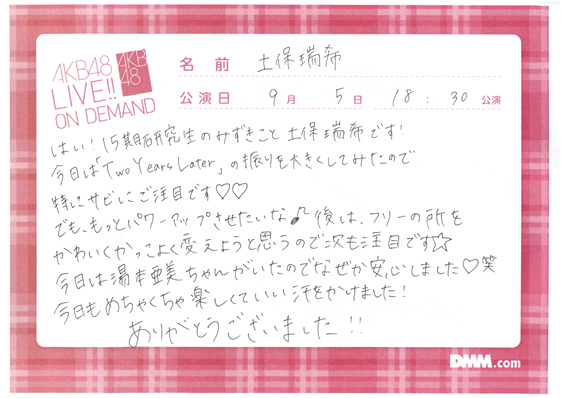 AKB48
LIVE!!
ON DEMAND
AKB
48
名前 土保瑞希
公演日 9月 5日 18:30 公演
はい!15期研究生のみずきこと土保瑞希です!
今日は「Two Years Later」の振りを大きくしてみたので
特にサビにご注目です♡♡
でも、もっとパワーアップさせたいな♪後は、フリーの所を
かわいくかっこよく変えようと思うので次も注目です☆
今日は湯本亜美ちゃんがいたのでなぜか安心しました♡笑
今日もめちゃくちゃ楽しくていい汗をかけました!
ありがとうございました!!
DMM.com